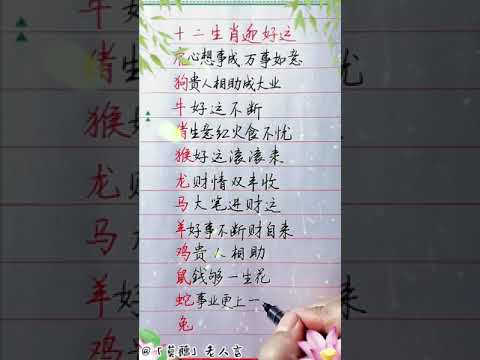 十二生肖迎好运
虎心想事成 万事如意
狗贵人相助成大业
牛好运不断
猪生意红火食不忧
猴好运滚滚来
龙财情双丰收
马大笔进财运
羊好事不断财自来
鸡贵人相助
鼠钱够一生花
蛇事业更上一
兔
老人言